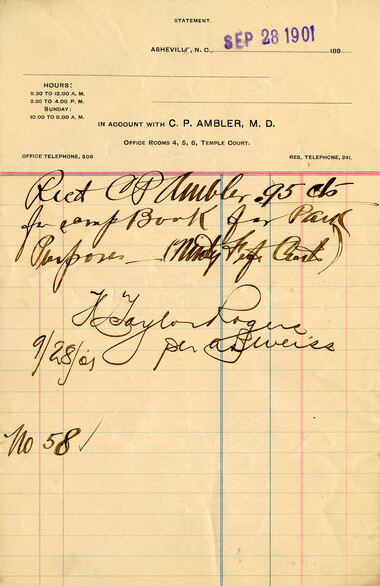 STATEMENT.
ASHEVILLE, N. C., SEP 28 1901 189
HOURS:
9.30 TO 12.00 A. M.
2.30 TO 4.00 P. M.
SUNDAY:
10.00 TO 11.00 A. M.
IN ACCOUNT WITH C. P. AMBLER, M. D.
OFFICE ROOMS 4, 5, 6, TEMPLE COURT.
OFFICE TELEPHONE, 206.
RES. TELEPHONE, 241.
Recd C P Ambler .95 cts
for Book for Park
Purposes — (Ninety Five Cents)
H Taylor Rogers
9/28/01 per Weiss
No 58